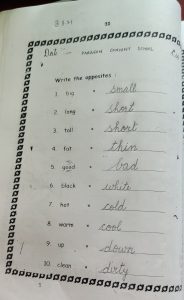 35
PARAGON CONVENT SCHOOL
Write the opposites :
1. big - small
2. long - short
3. tall - short
4. fat - thin
5. good - bad
6. black - white
7. hot - cold
8. warm - cool
9. up - down
10. clean - dirty